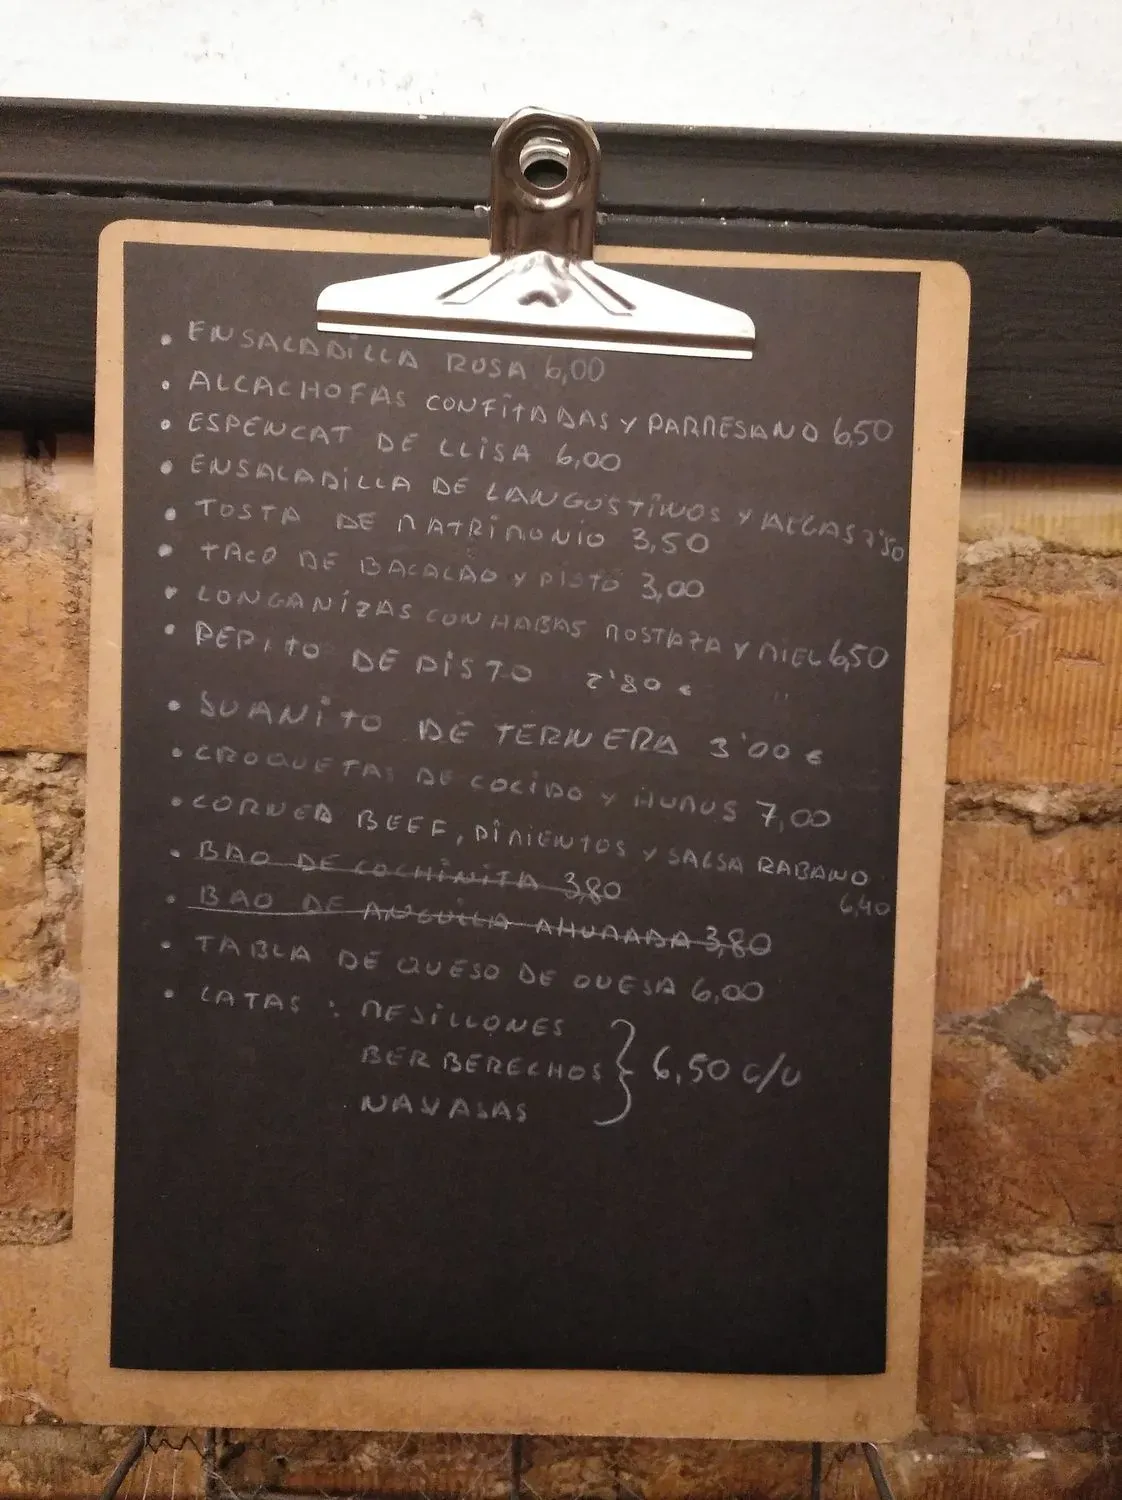 • ENSALADILLA ROSA 6,00
• ALCACHOFAS CONFITADAS Y PARMESANO 6,50
• ESPENCAT DE LLISA 6,00
• ENSALADILLA DE LANGOSTINOS Y ALGAS 7'50
• TOSTA DE MATRIMONIO 3,50
• TACO DE BACALAO Y PISTO 3,00
• LONGANIZAS CON HABAS MOSTAZA Y MIEL 6,50
• PEPITO DE PISTO 2'80 €
• JUANITO DE TERNERA 3'00 €
• CROQUETAS DE COCIDO Y HUMUS 7,00
• CORNED BEEF, PIMIENTOS Y SALSA RABANO
6,40
• BAO DE COCHINITA 3,80
• BAO DE ANGUILA AHUMADA 3,80
• TABLA DE QUESO DE OVEJA 6,00
• LATAS : MEJILLONES
BERBERECHOS } 6,50 C/U
NAVAJAS